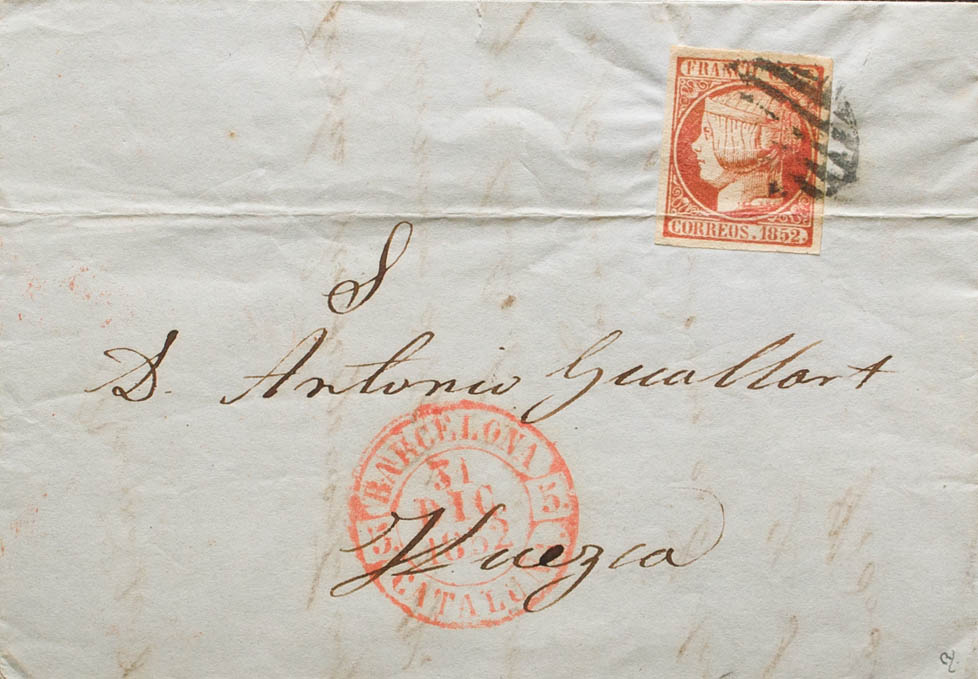 FRANCO
CORREOS. 1852.
S
D. Antonio Guallart
BARCELONA
31
DIC
1852
5. 5.
CATALUÑA
Huezca